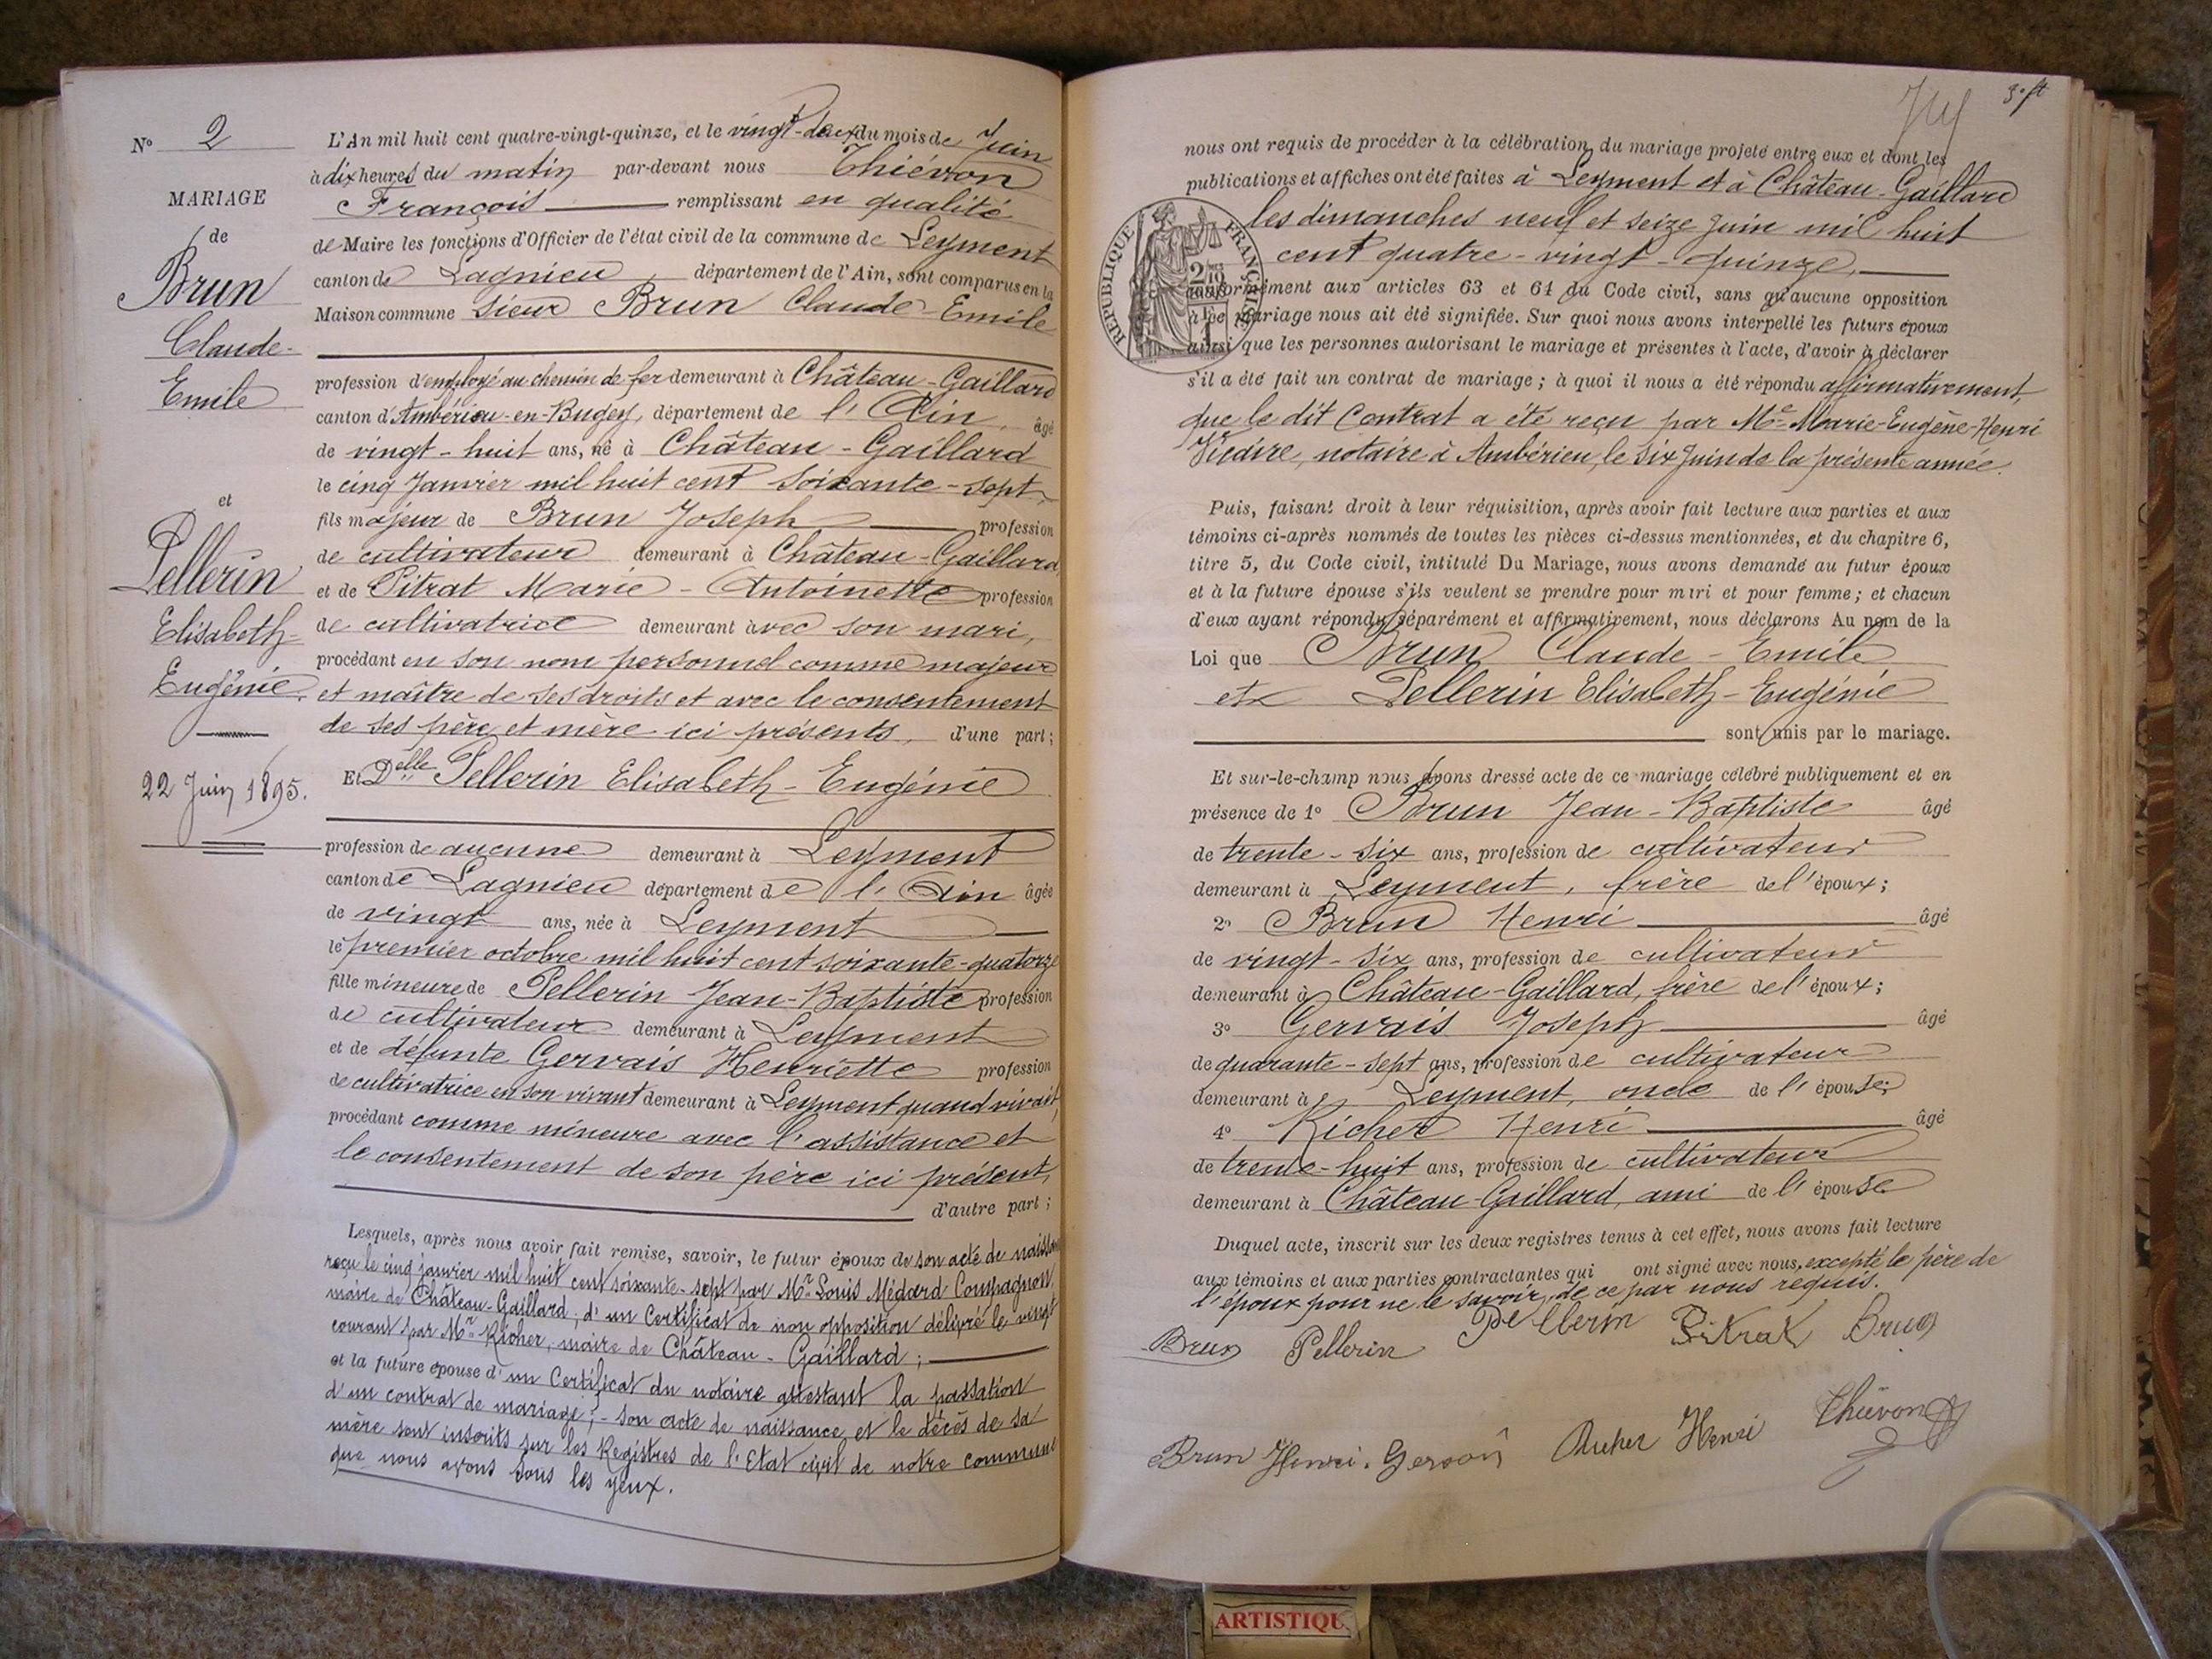 N° 2
MARIAGE
de
Brun
Claude-
Emile
et
Pellerin
Elisabeth-
Eugénie.
22 Juin 1895.
L'An mil huit cent quatre-vingt-quinze, et le vingt-deux du mois de Juin
à dix heures du matin par-devant nous Thiévon
François remplissant en qualité
de Maire les fonctions d'Officier de l'état civil de la commune de Leyment
canton de Lagnieu, département de l'Ain, sont comparus en la
Maison commune sieur Brun Claude-Emile
profession d'employé au chemin de fer demeurant à Château-Gaillard
canton d'Ambérieu-en-Bugey, département de l'Ain, âgé
de vingt-huit ans, né à Château-Gaillard
le cinq Janvier mil huit cent soixante-sept,
fils majeur de Brun Joseph profession
de cultivateur demeurant à Château-Gaillard,
et de Pitrat Marie-Antoinette profession
de cultivatrice demeurant avec son mari,
procédant en son nom personnel comme majeur
et maître de ses droits et avec le consentement
de ses père et mère ici présents, d'une part;
Et Delle Pellerin Elisabeth-Eugénie
profession de aucune demeurant à Leyment
canton de Lagnieu département de l'Ain âgée
de vingt ans, née à Leyment
le premier octobre mil huit cent soixante-quatorze
fille mineure de Pellerin Jean-Baptiste profession
de cultivateur demeurant à Leyment
et de défunte Gervais Henriette profession
de cultivatrice en son vivant demeurant à Leyment quand vivait,
procédant comme mineure avec l'assistance et
le consentement de son père ici présent,
d'autre part;
Lesquels, après nous avoir fait remise, savoir, le futur époux de son acte de naissance
reçu le cinq janvier mil huit cent soixante-sept par Mr Louis Médard Compagnon,
maire de Château-Gaillard; d'un Certificat de non opposition délivré le vingt
courant par Mr Richer, maire de Château-Gaillard;
et la future épouse d'un Certificat du notaire attestant la passation
d'un contrat de mariage; - son acte de naissance et le décès de sa
mère sont inscrits sur les Registres de l'Etat civil de notre commune
que nous avons sous les yeux.
3e ft
nous ont requis de procéder à la célébration du mariage projeté entre eux et dont les
publications et affiches ont été faites à Leyment et à Château-Gaillard
les dimanches neuf et seize Juin mil huit
cent quatre-vingt-quinze,
RÉPUBLIQUE FRANÇAISE
conformément aux articles 63 et 64 du Code civil, sans qu'aucune opposition
à ce mariage nous ait été signifiée. Sur quoi nous avons interpellé les futurs époux
ainsi que les personnes autorisant le mariage et présentes à l'acte, d'avoir à déclarer
s'il a été fait un contrat de mariage; à quoi il nous a été répondu affirmativement,
que le dit Contrat a été reçu par Me Marie-Eugène-Henri
notaire à Ambérieu, le six Juin de la présente année.
Puis, faisant droit à leur réquisition, après avoir fait lecture aux parties et aux
témoins ci-après nommés de toutes les pièces ci-dessus mentionnées, et du chapitre 6,
titre 5, du Code civil, intitulé Du Mariage, nous avons demandé au futur époux
et à la future épouse s'ils veulent se prendre pour mari et pour femme; et chacun
d'eux ayant répondu séparément et affirmativement, nous déclarons Au nom de la
Loi que Brun Claude-Emile
et Pellerin Elisabeth-Eugénie
sont unis par le mariage.
Et sur-le-champ nous avons dressé acte de ce mariage célébré publiquement et en
présence de 1° Brun Jean-Baptiste âgé
de trente-six ans, profession de cultivateur
demeurant à Leyment, frère de l'époux;
2° Brun Henri âgé
de vingt-six ans, profession de cultivateur
demeurant à Château-Gaillard, frère de l'époux;
3° Gervais Joseph âgé
de quarante-sept ans, profession de cultivateur
demeurant à Leyment, oncle de l'épouse;
4° Richer Henri âgé
de trente-huit ans, profession de cultivateur
demeurant à Château-Gaillard, ami de l'épouse
Duquel acte, inscrit sur les deux registres tenus à cet effet, nous avons fait lecture
aux témoins et aux parties contractantes qui ont signé avec nous, excepté le père de
l'époux pour ne le savoir, de ce par nous requis.
Brun Pellerin Pellerin Pitrat Brun
Brun Henri. Gervais Richer Henri Thiévon
ARTISTIQU